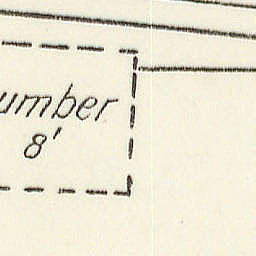 umber
8'